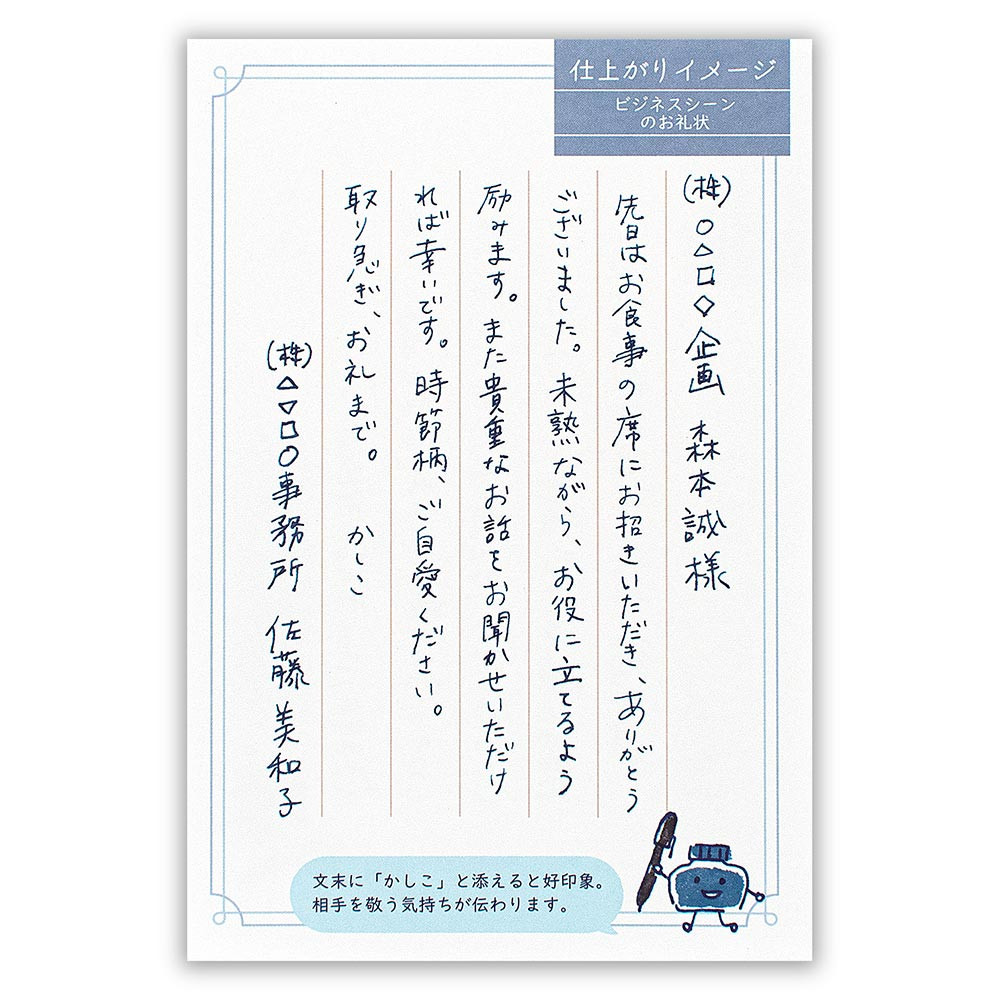 仕上がりイメージ
ビジネスシーン
のお礼状
(株)○△□◇企画 森本誠様
先日はお食事の席にお招きいただき、ありがとう
ございました。未熟ながら、お役に立てるよう
励みます。また貴重なお話をお聞かせいただけ
れば幸いです。時節柄、ご自愛ください。
取り急ぎ、お礼まで。 かしこ
(株)△▽□○事務所 佐藤美和子
文末に「かしこ」と添えると好印象。
相手を敬う気持ちが伝わります。